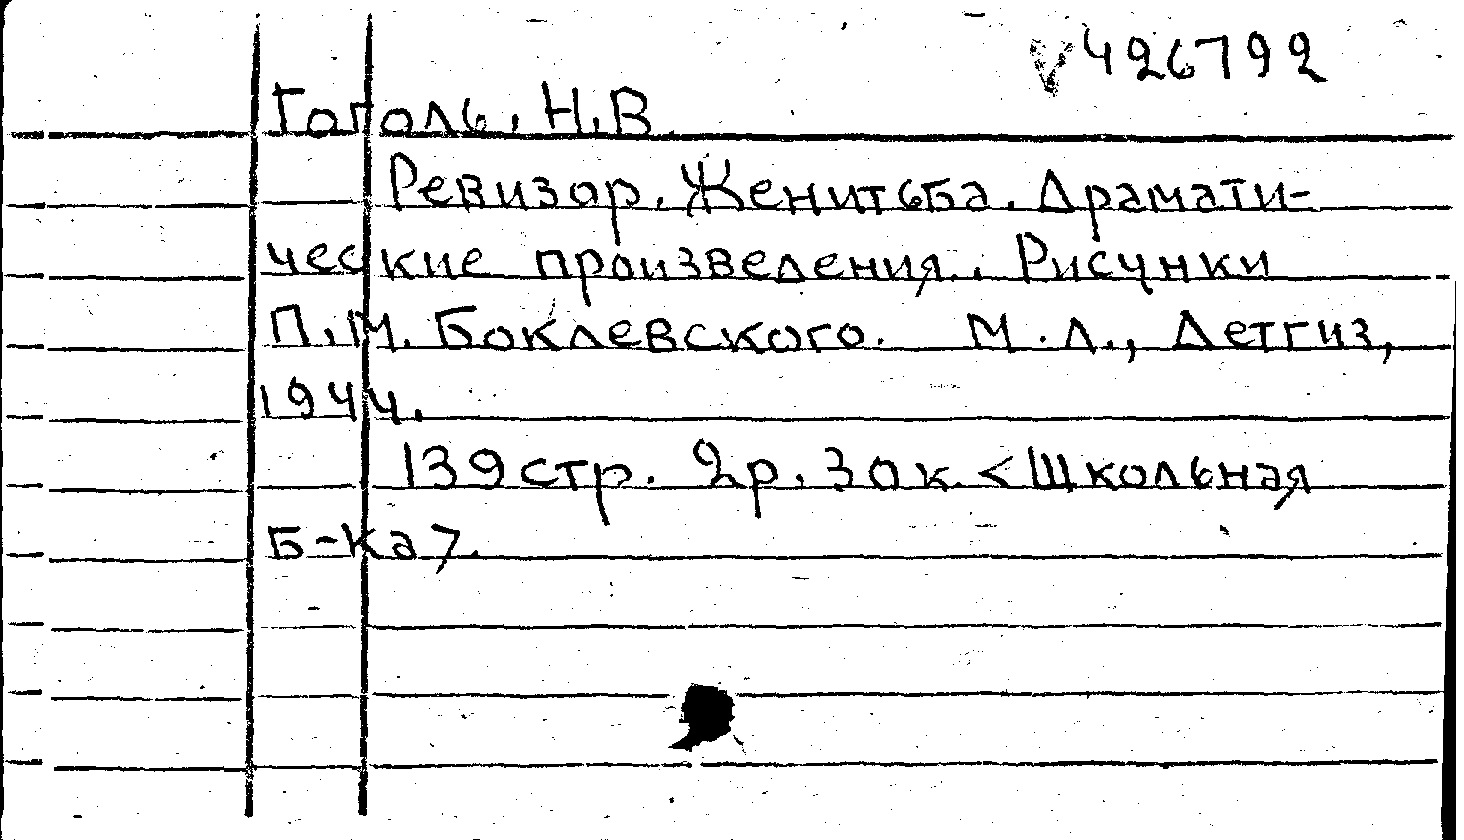 V426792
Гоголь, Н.В.
Ревизор. Женитьба. Драмати-
ческие произведения. Рисунки
П.М. Боклевского. М.Л., Детгиз,
1944.
139 стр. 2р. 30к. <Школьная
Б-ка>.